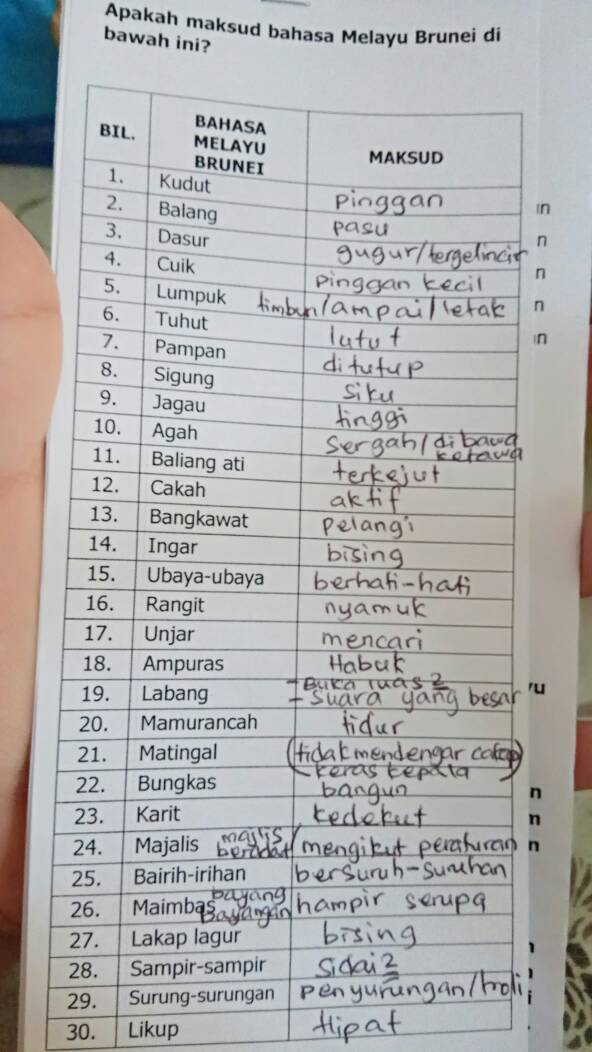 Apakah maksud bahasa Melayu Brunei di
bawah ini?
BIL. BAHASA MELAYU BRUNEI MAKSUD
1. Kudut pinggan
2. Balang pasu
3. Dasur gugur/tergelincir
4. Cuik pinggan kecil
5. Lumpuk timbun/ampai/letak
6. Tuhut lutut
7. Pampan ditutup
8. Sigung siku
9. Jagau tinggi
10. Agah sergah/dibawa ketawa
11. Baliang ati terkejut
12. Cakah aktif
13. Bangkawat pelangi
14. Ingar bising
15. Ubaya-ubaya berhati-hati
16. Rangit nyamuk
17. Unjar mencari
18. Ampuras Habuk
19. Labang - Buka luas2
- suara yang besar
20. Mamurancah tidur
21. Matingal (tidak mendengar cakap)
keras kepala
22. Bungkas bangun
23. Karit kedekut
24. Majalis majlis beradat/mengikut peraturan
25. Bairih-irihan bersuruh-suruhan
26. Maimbas bayang Bayangan/hampir serupa
27. Lakap lagur bising
28. Sampir-sampir Sidai2
29. Surung-surungan penyurungan/troli
30. Likup tlipat
in
n
n
n
in
n
m
n